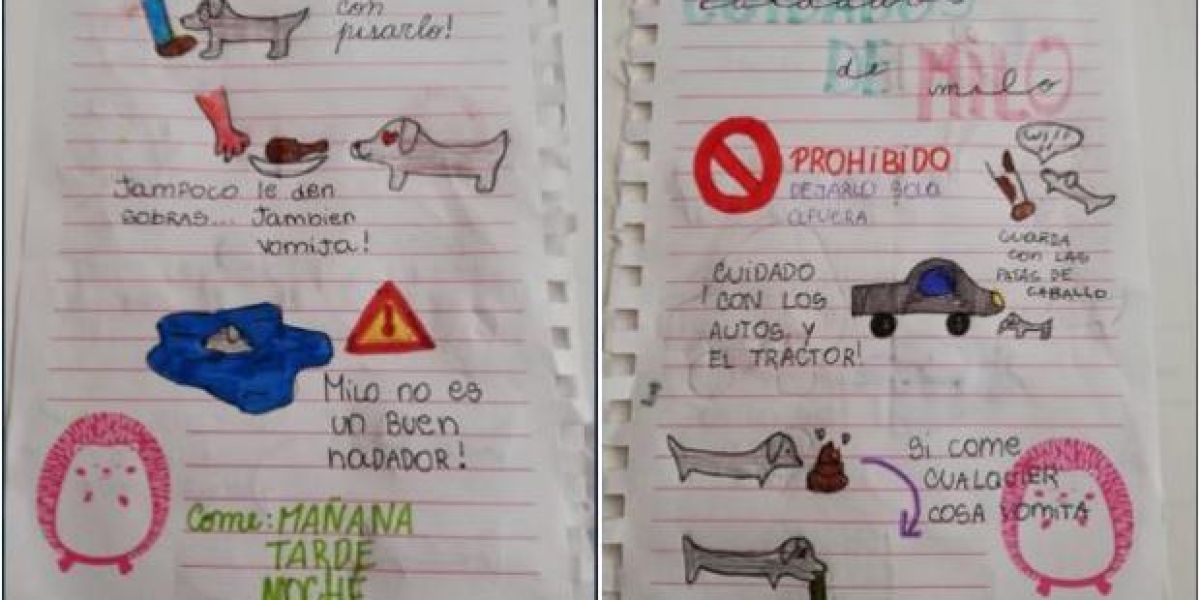 con
pisarlo!
Tampoco le den
sobras... Tambien
vomita!
Milo no es
un buen
nadador!
Come: MAÑANA
TARDE
NOCHE
CUIDADOS
DE MILO
de milo
PROHIBIDO
DEJARLO SOLO
AFUERA
GUARDA
CON LAS
PATAS DE
CABALLO
CUIDADO
¡CON LOS
AUTOS Y
EL TRACTOR!
Si come
CUALQUIER
COSA VOMITA